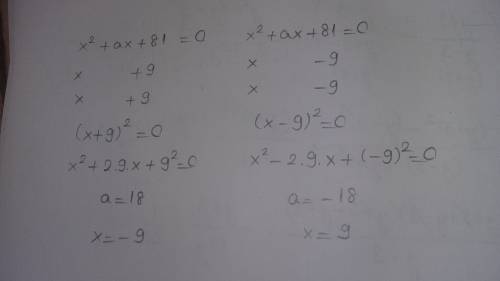 x² + ax + 81 = 0
x +9
x +9
(x+9)² = 0
x² + 2.9.x + 9² = 0
a = 18
x = -9
x² + ax + 81 = 0
x -9
x -9
(x - 9)² = 0
x² - 2.9.x + (-9)² = 0
a = -18
x = 9